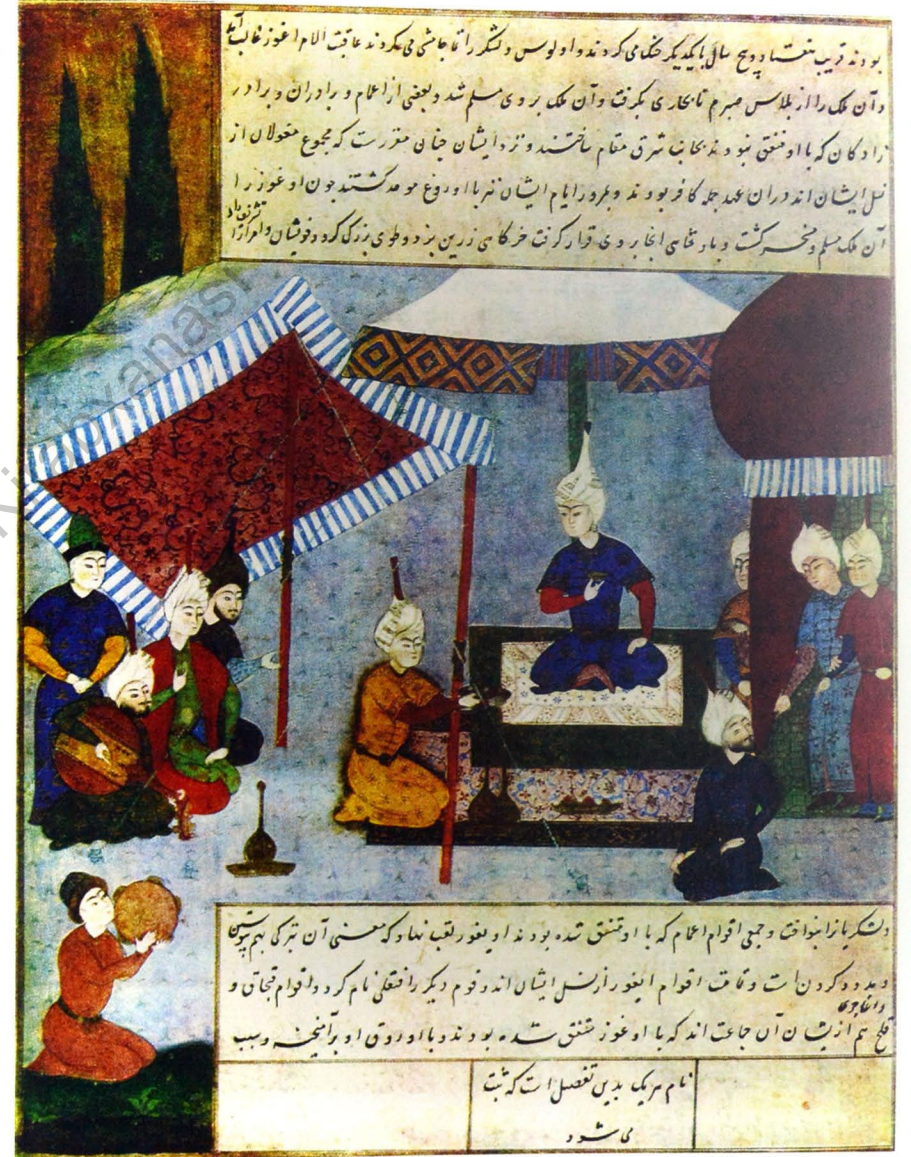 بودند قریب هفتاد و پنج سال با یکدیگر جنک می کردند و اولوس و لشکر را تاجامشی می کردند عاقبت الامر اغوز غالب آمد
و آن ملک را از تلاس صیرم تا بخاری بگرفت و آن ملک بر وی مسلم شد و بعضی از اعمام و برادران و برادر
زادکان که با او متفق نبودند بجانب شرق مقام ساختند و نزد ایشان چنان مقررست که مجموع مغولان از
نسل ایشان اند در ان عهد جمله کافر بودند و بمرور ایام ایشان نیز با اوروغ موحد کشتند چون اوغوز را
آن ملک مسلم و مسخر کشت و پادشاهی انجا بر وی قرار کرفت خرکاهی زرین بزد و طوی بزرک کرد و خویشان و امرا را تشریف داد
و لشکریانرا بنواخت و جمعی اقوام اعمام که با او متفق شده بودند اویغور لقب نهاد که معنی آن بترکی بهم پیوستن
و مدد کردن است و تمامت اقوام ایغور از نسل ایشان اند و قوم دیگر را قنقلی نام کرد و اقوام قبچاق و
قلج و اغاجری هم از نسل آن جماعت اند که با اوغوز متفق شده بودند و با اوروق او برآمیخته و سبب
نام هریک بدین تفصیل است که ثبت
می شود